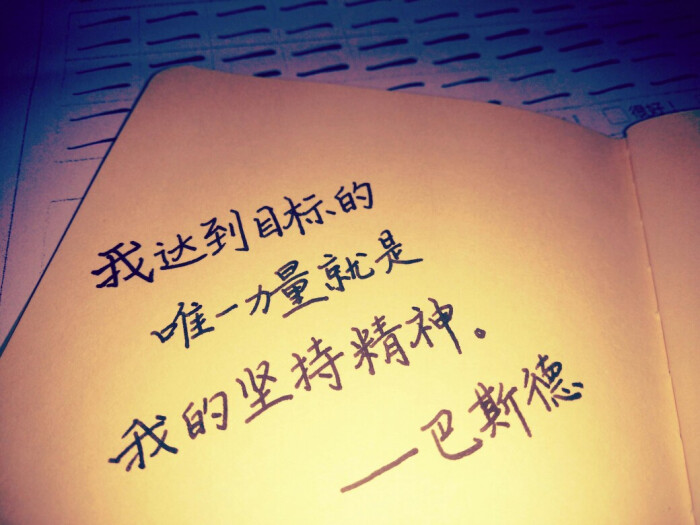 很好!
我达到目标的
唯一力量就是
我的坚持精神。
—巴斯德